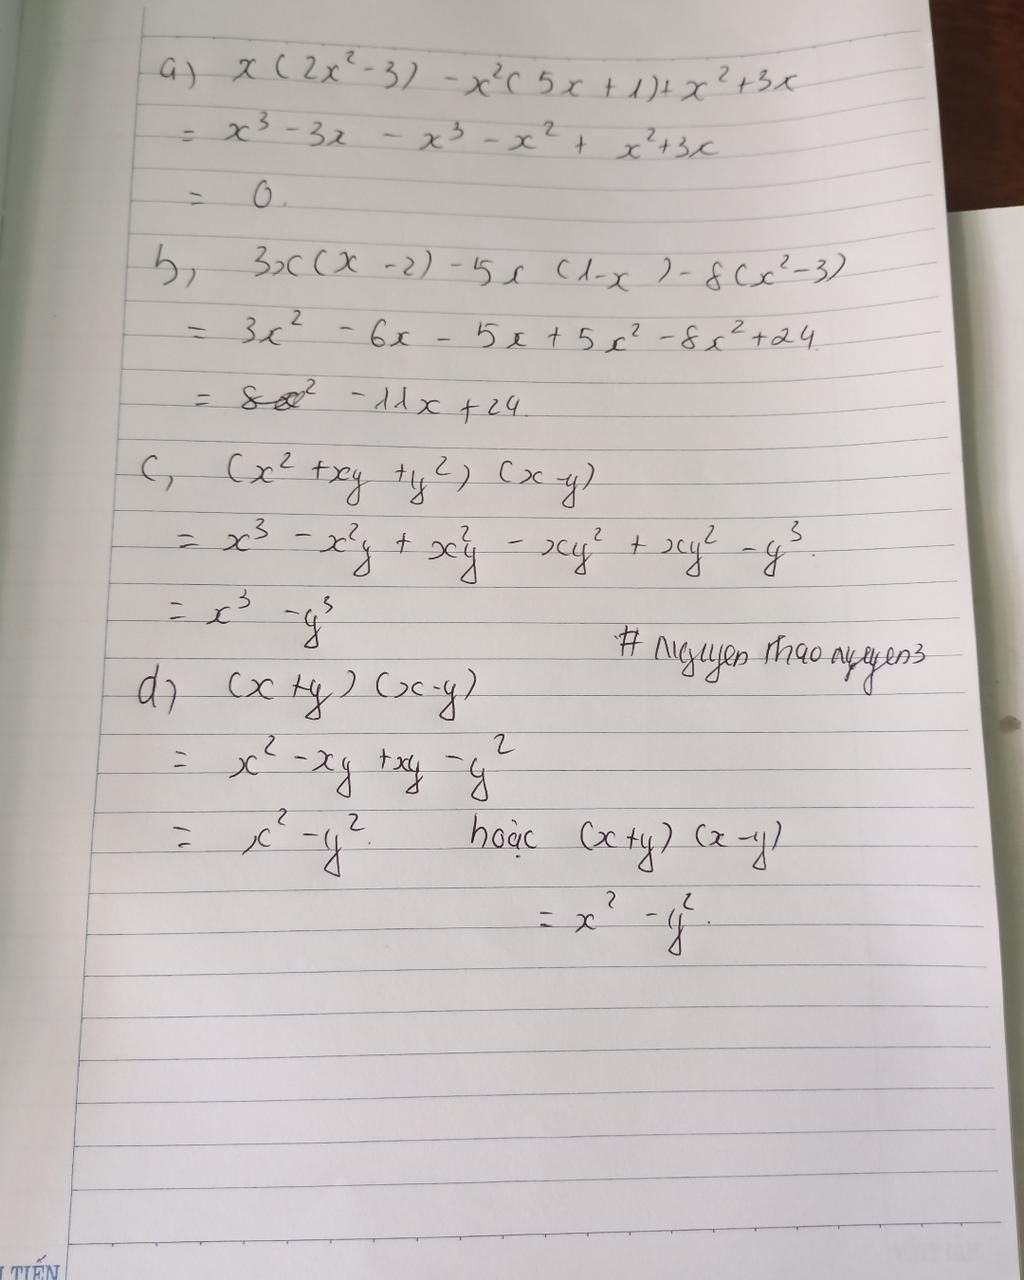 a) x(2x² - 3) - x²(5x + 1) + x² + 3x
= x³ - 3x - x³ - x² + x² + 3x
= 0.
b, 3x(x - 2) - 5x (1 - x) - 8(x² - 3)
= 3x² - 6x - 5x + 5x² - 8x² + 24
= - 11x + 24.
c, (x² + xy + y²) (x - y)
= x³ - x²y + x²y - xy² + xy² - y³.
= x³ - y³
# nguyen thao nguyen3
d, (x + y) (x - y)
= x² - xy + xy - y²
= x² - y². hoặc (x + y) (x - y)
= x² - y².
TIẾN